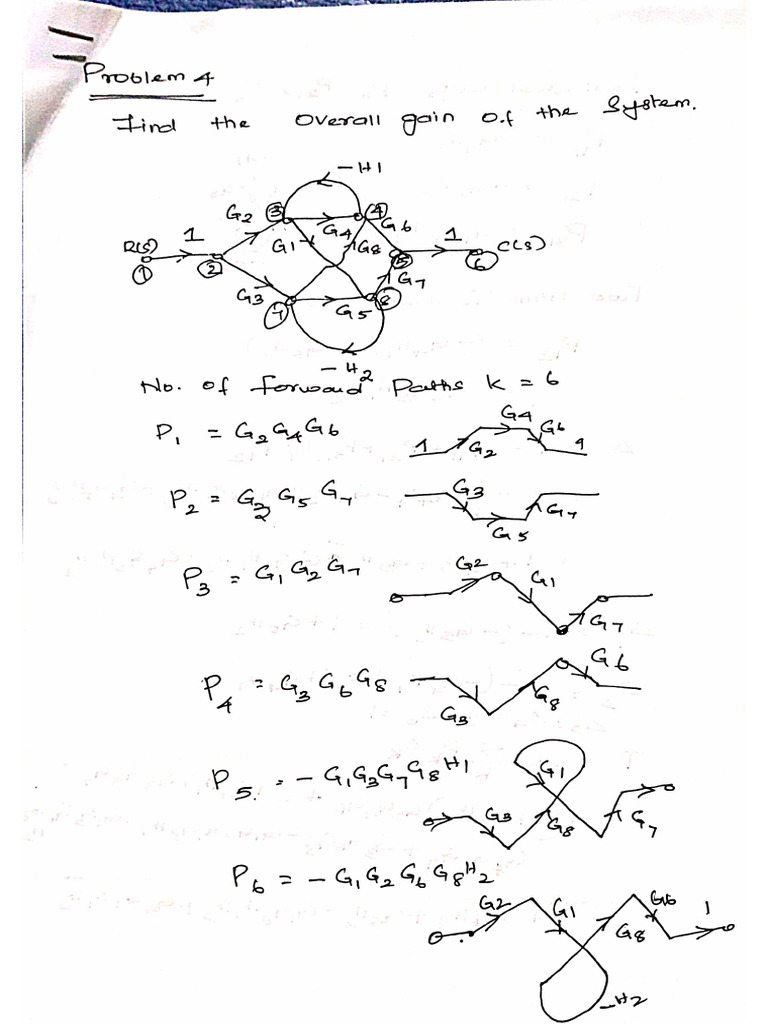 Problem 4
Find the overall gain of the System.
-H1
G2 ③ G4 ④ G6
R(s) 1 G1 G8 1 C(s)
① ② ⑤ ⑥
G3 ⑦ G5 ⑧ G7
-H2
No. of forward Paths K = 6
P1 = G2G4G6
1 G2 G4 G6 1
P2 = G3 G5 G7
G3 G5 G7
P3 = G1 G2 G7
G2 G1 G7
P4 = G3 G6 G8
G3 G8 G6
P5. = - G1G3G7G8H1
G3 G8 G1 G7
P6 = - G1G2G6G8H2
G2 G1 G8 G6 1
-H2